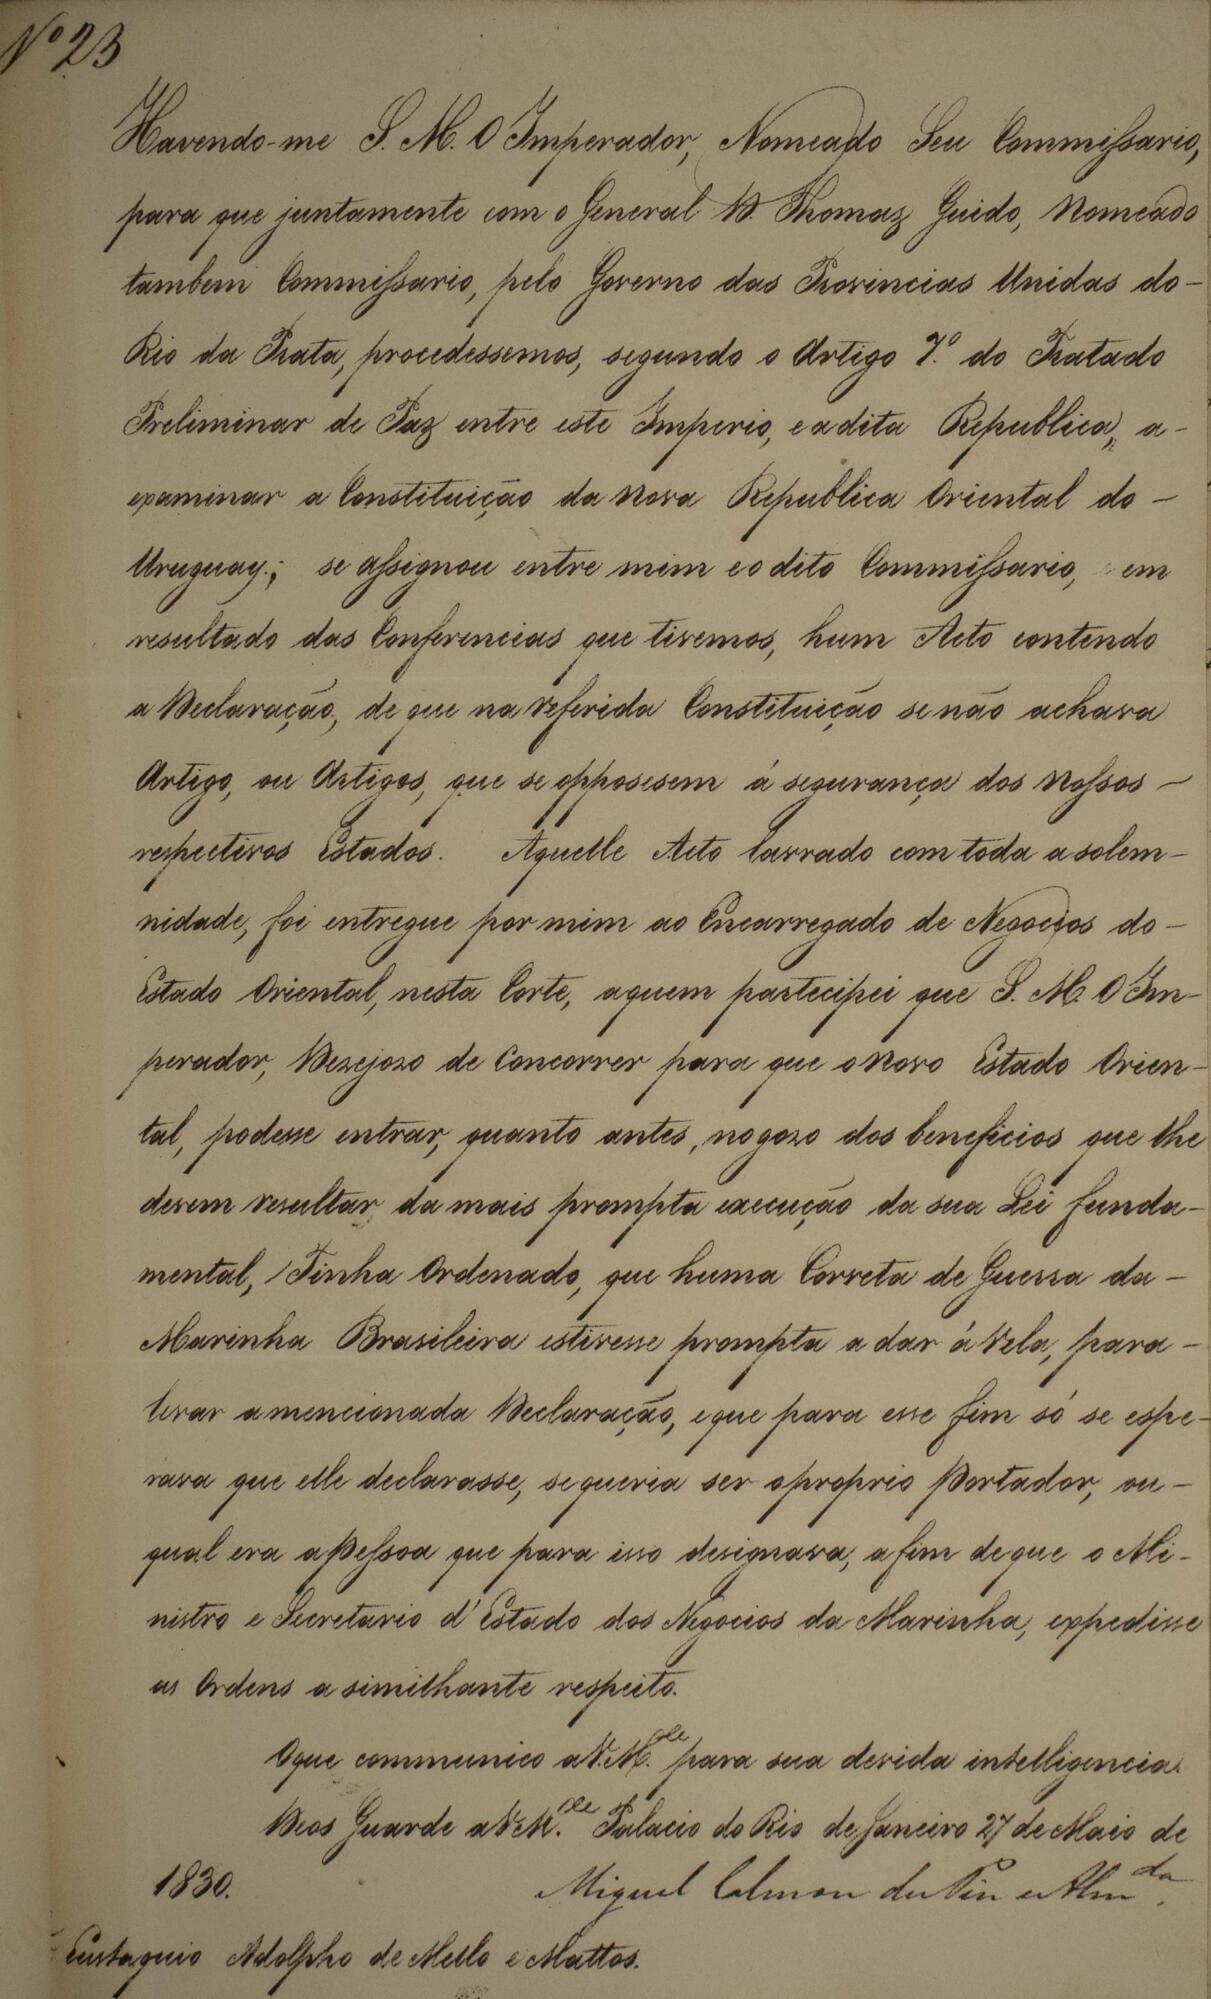 Nº 23
Havendo-me S. M. O Imperador, Nomeado Seu Commissario,
para que juntamente com o General D. Thomaz Guido, Nomeado
tambem Commissario, pelo Governo das Provincias Unidas do-
Rio da Prata, procedessemos, segundo o Artigo 7.º do Tratado
Preliminar de Paz entre este Imperio, e a dita Republica, a-
examinar a Constituição da nova Republica Oriental do-
Uruguay; se assignou entre mim e o dito Commissario, em
resultado das Conferencias que tivemos, hum Acto contendo
a Declaração, de que na referida Constituição se não achava
Artigo, ou Artigos, que se opposesem á segurança dos nossos-
respectivos Estados. Aquelle Acto lavrado com toda a solem-
nidade, foi entregue por mim ao Encarregado de Negocios do-
Estado Oriental, nesta Corte, aquem partecipei que S. M. O Im-
perador, Desejozo de Concorrer para que o novo Estado Orien-
tal, podesse entrar, quanto antes, no gozo dos beneficios que lhe
devem resultar da mais prompta execução da sua Lei funda-
mental, Tinha Ordenado, que huma Corveta de Guerra da-
Marinha Brasileira estivesse prompta a dar á Vela, para-
levar a mencionada Declaração, e que para esse fim só se espe-
rava que elle declarasse, se queria ser o proprio Portador, ou-
qual era a Pessoa que para isso designava, a fim de que o Mi-
nistro e Secretario d'Estado dos Negocios da Marinha, expedisse
as Ordens a similhante respeito.
O que communico a V. M.ce para sua devida intelligencia.
Deos Guarde a V. M.ce Palacio do Rio de Janeiro 27 de Maio de
1830. Miguel Calmon du Pin e Alm.da
Eustaquio Adolpho de Mello e Mattos.